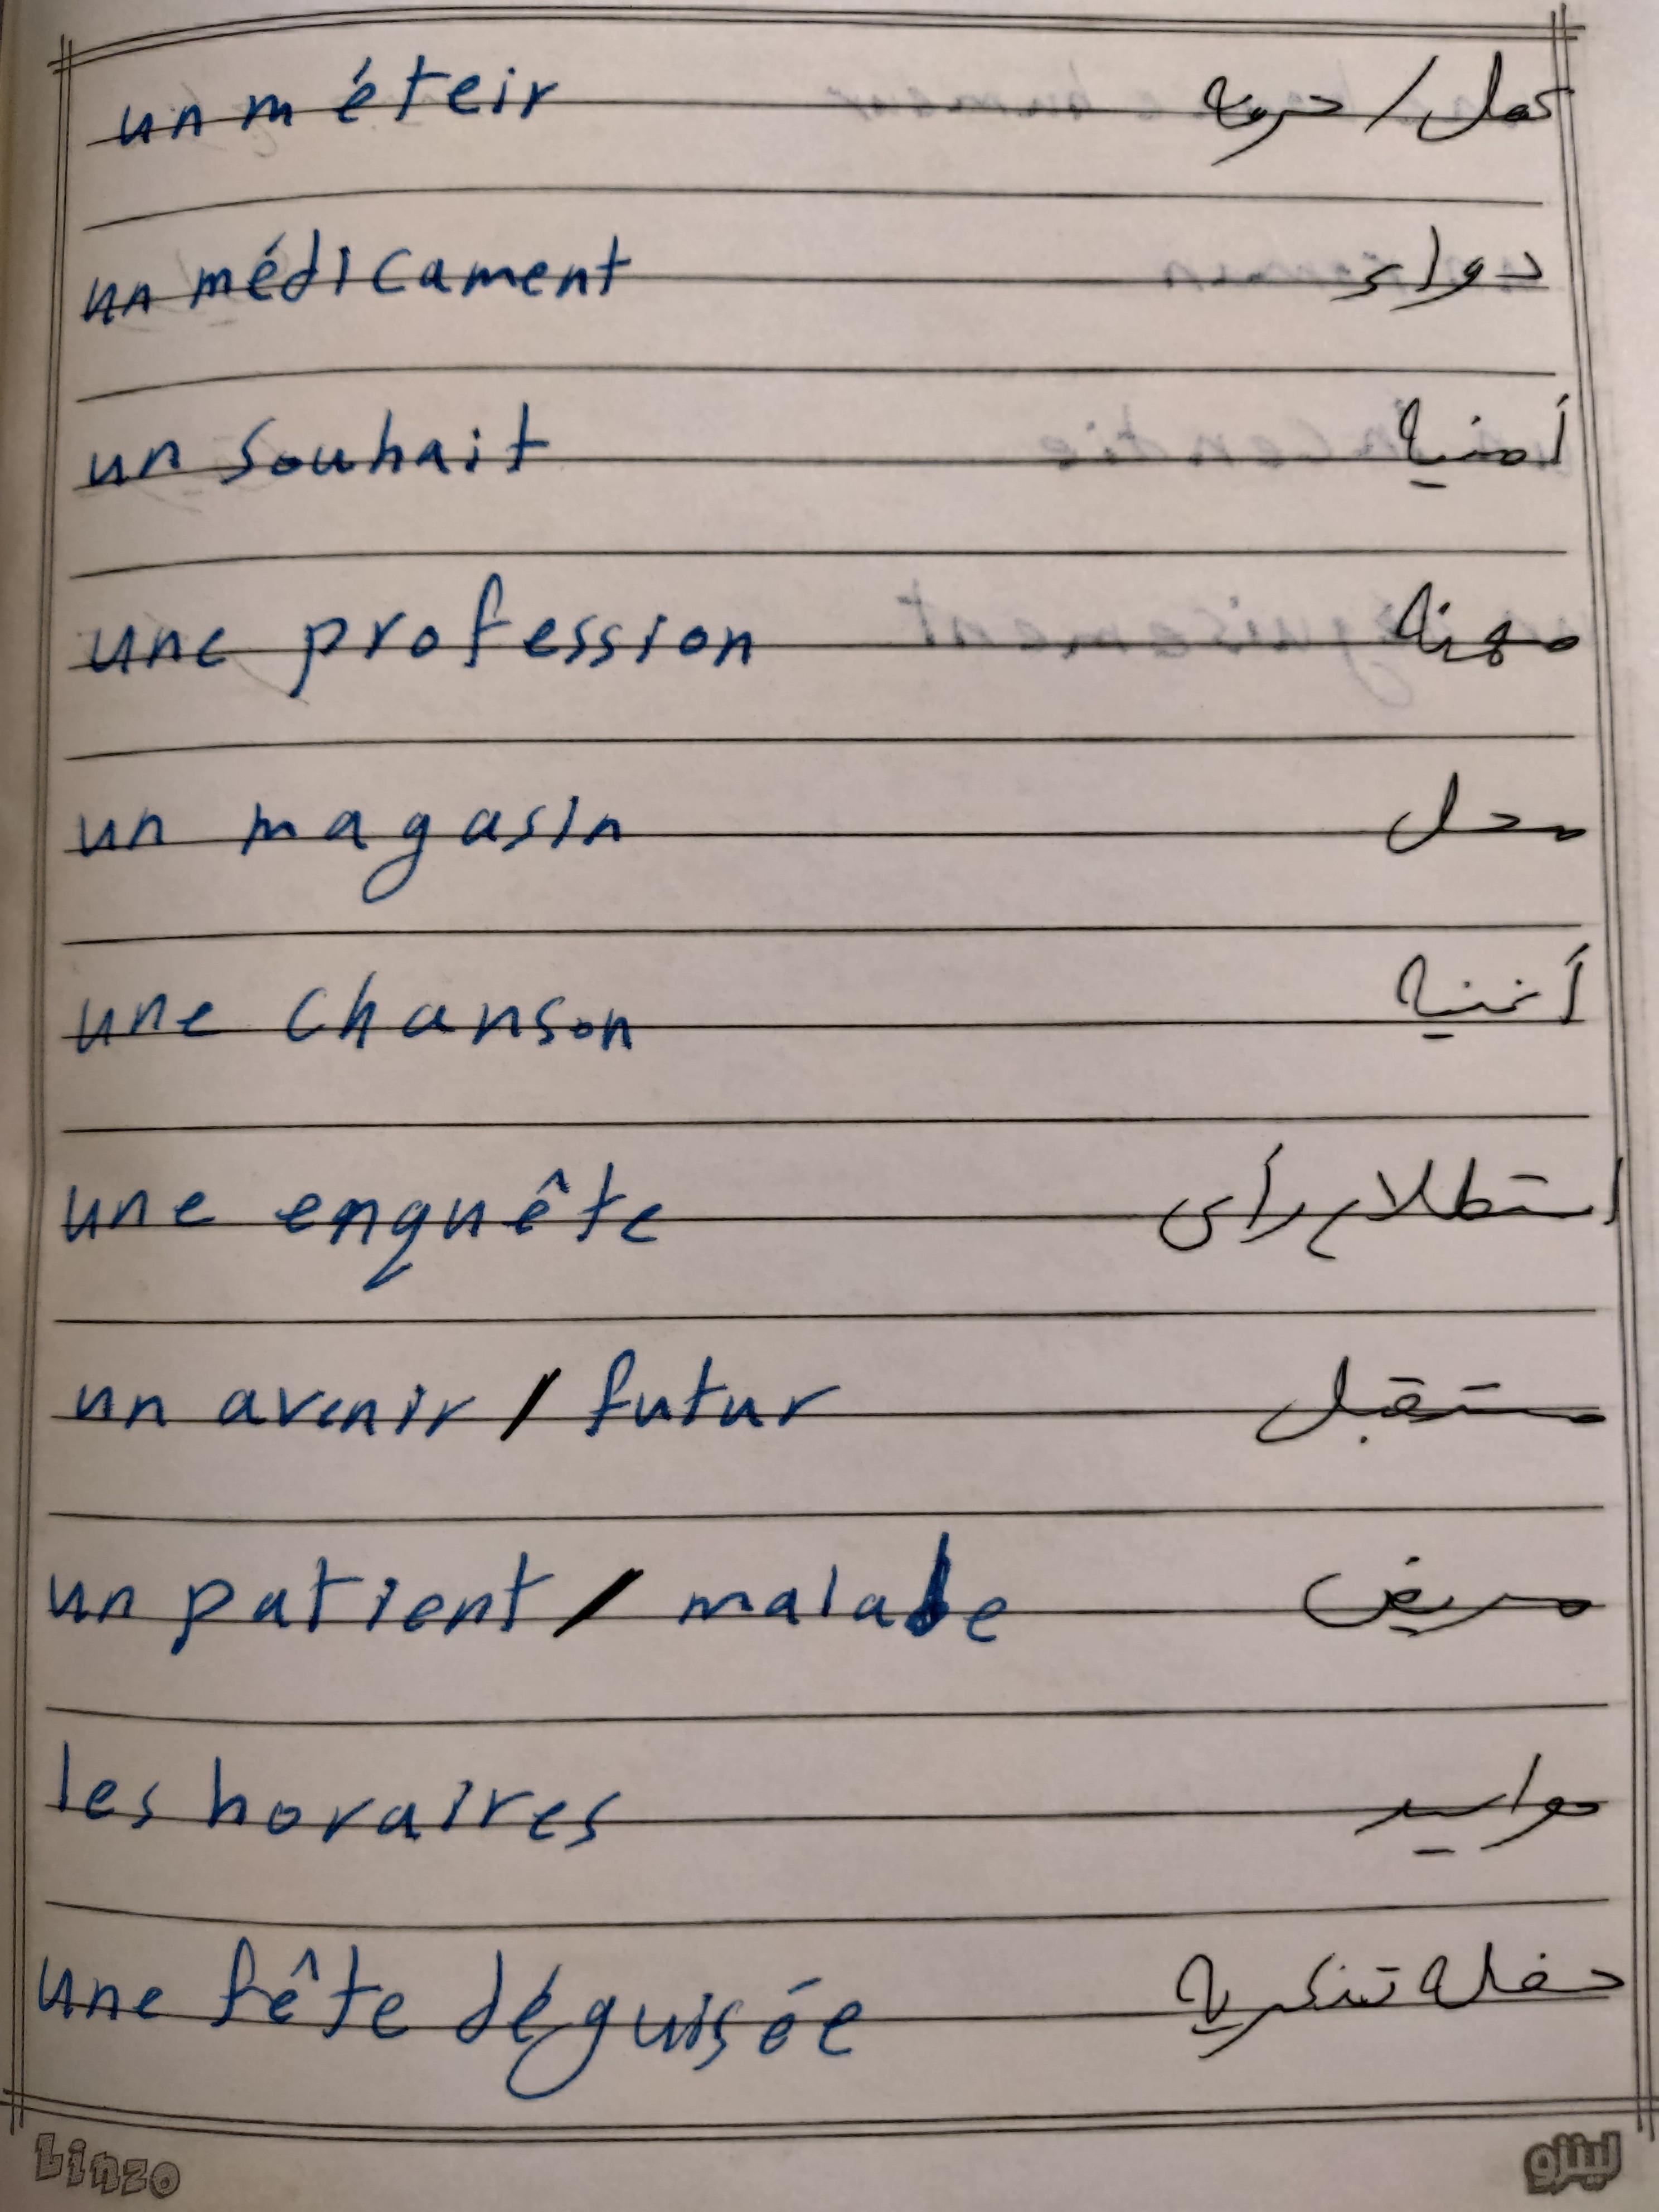 un méteir عمل / حرفه
un médicament دواء
un souhait أمنيه
une profession مهنه
un magasin محل
une chanson أغنيه
une enquête استطلاع رأى
un avenir / futur مستقبل
un patient / malade مريض
les horaires مواعيد
une fête déguisée حفله تنكريه
Linzo لينزو